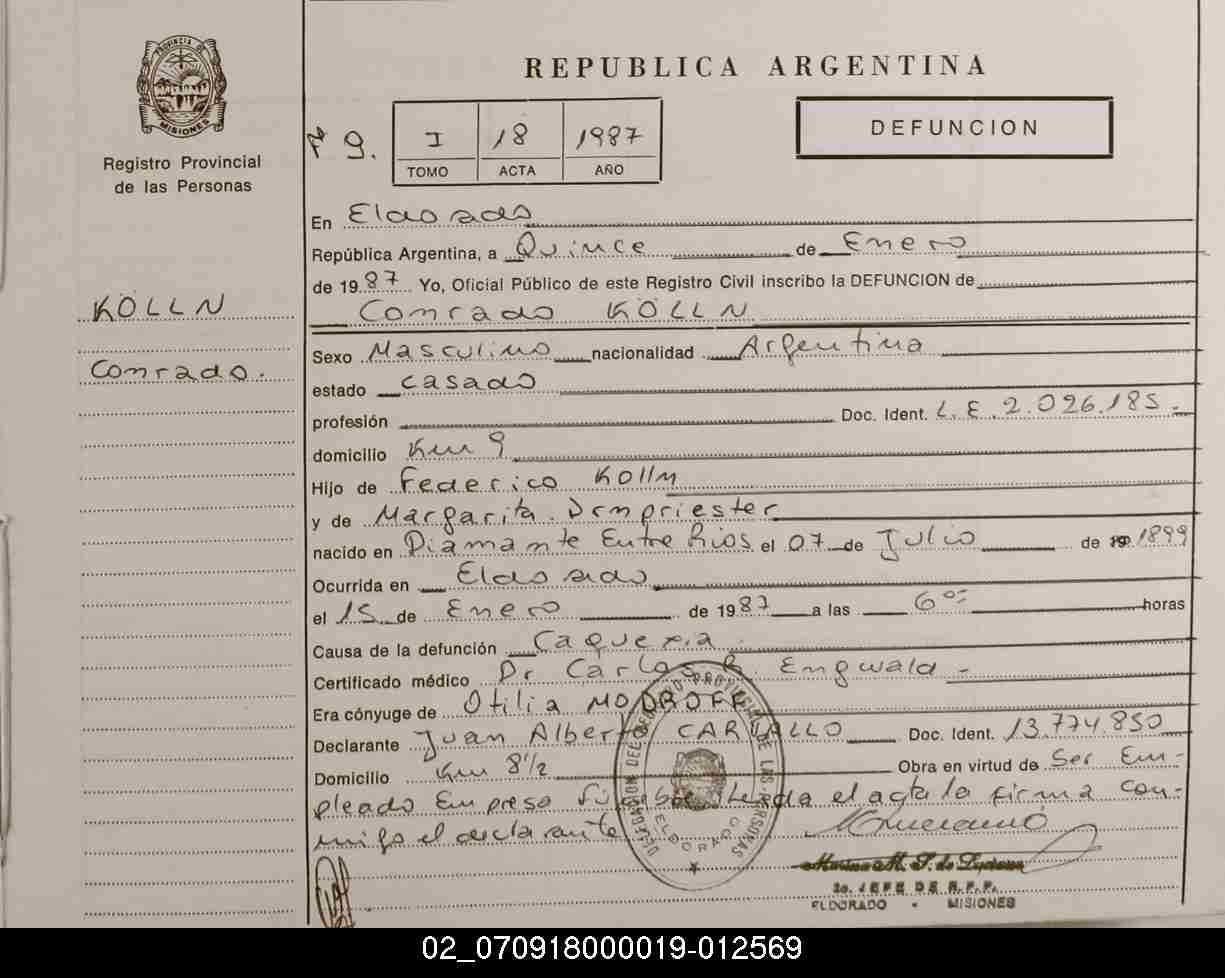 PROVINCIA DE
MISIONES
Registro Provincial
de las Personas
REPUBLICA ARGENTINA
Fº 9.
I 18 1987
TOMO ACTA AÑO
DEFUNCION
En Eldorado
República Argentina, a Quince de Enero
de 1987 Yo, Oficial Público de este Registro Civil inscribo la DEFUNCION de
Conrado KÖLLN
KÖLLN
Conrado.
Sexo Masculino nacionalidad Argentina
estado casado
profesión Doc. Ident. L.E. 2.026.185.-
domicilio Km 9
Hijo de Federico Kölln
y de Margarita
nacido en Diamante Entre Rios el 07 de Julio de 19 1899
Ocurrida en Eldorado
el 15 de Enero de 1987 a las 6 horas
Causa de la defunción Caquexia
Certificado médico Dr Carlos R. Engwald -
Era cónyuge de Otilia MODROFF
Declarante Juan Alberto CARVALLO Doc. Ident. 13.774.850
Domicilio Km 8 1/2 Obra en virtud de Ser Em-
pleado Empresa Fúnebre Leida el acta la firma con-
migo el declarante
DELEGACION DEL REGISTRO PROVINCIAL DE LAS PERSONAS
ELDORADO
2o. JEFE DE R.P.P.
ELDORADO - MISIONES
02_070918000019-012569